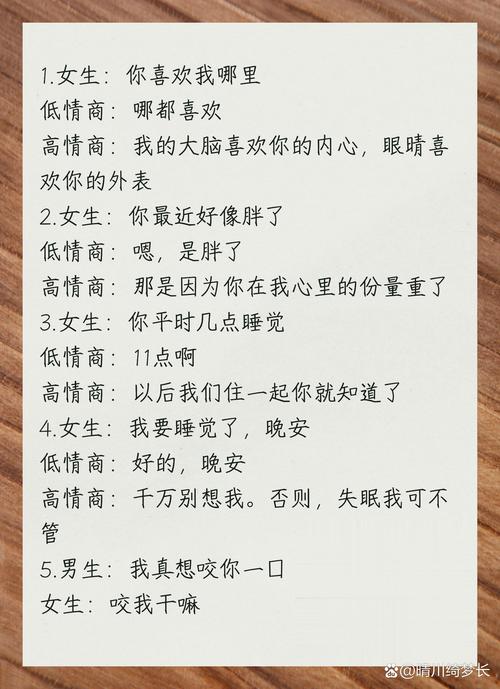 1.女生：你喜欢我哪里
低情商：哪都喜欢
高情商：我的大脑喜欢你的内心，眼睛喜
欢你的外表
2.女生：你最近好像胖了
低情商：嗯，是胖了
高情商：那是因为你在我心里的份量重了
3.女生：你平时几点睡觉
低情商：11点啊
高情商：以后我们住一起你就知道了
4.女生：我要睡觉了，晚安
低情商：好的，晚安
高情商：千万别想我。否则，失眠我可不
管
5.男生：我真想咬你一口
女生：咬我干嘛
@晴川绮梦长